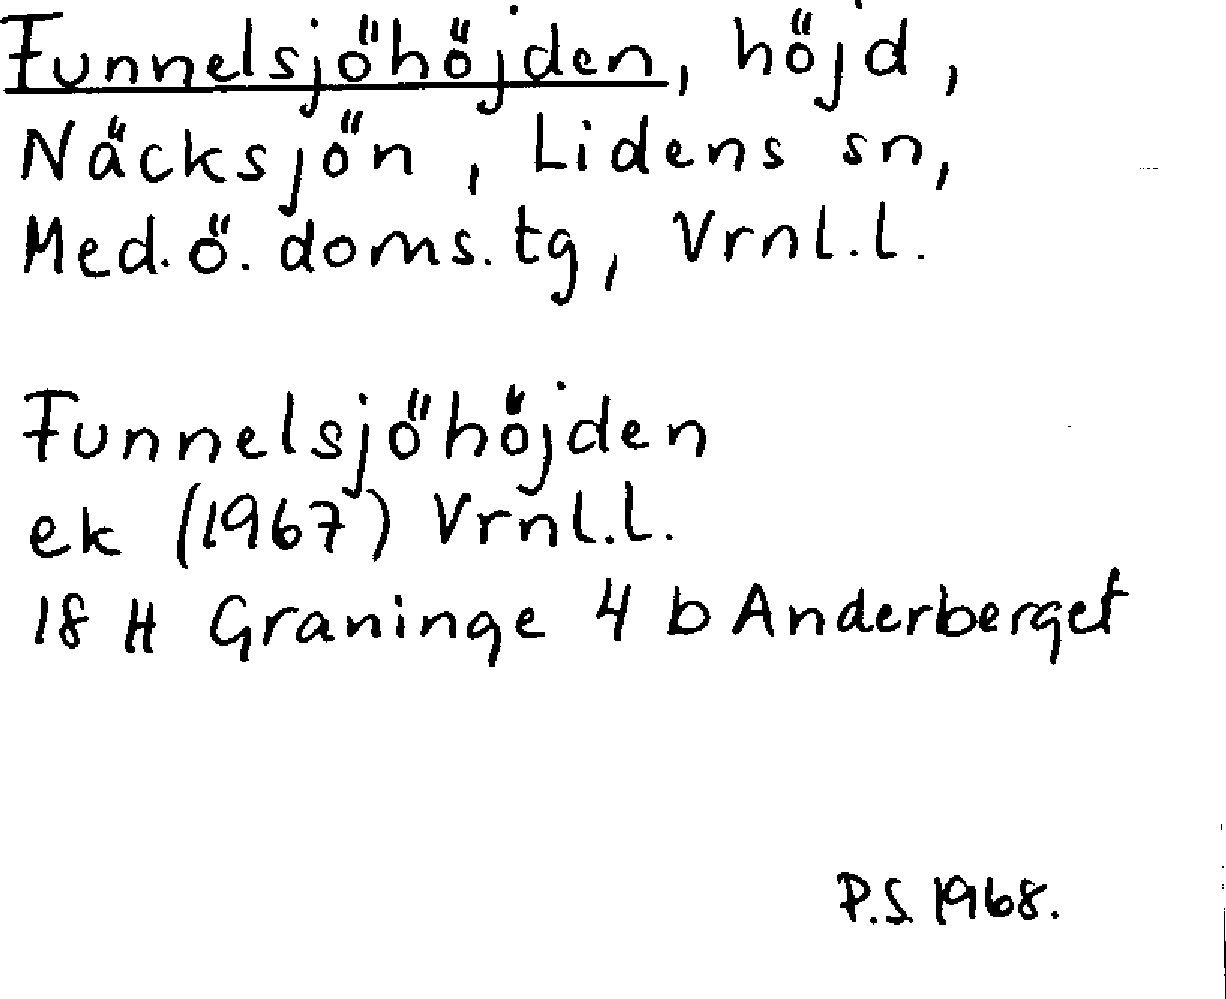 Funnelsjöhöjden, höjd,
Näcksjön, Lidens sn,
Med.ö. doms.tg, Vrnl.l.
Funnelsjöhöjden
ek (1967) Vrnl.l.
18 H Graninge 4 b Anderberget
P.S. 1968.